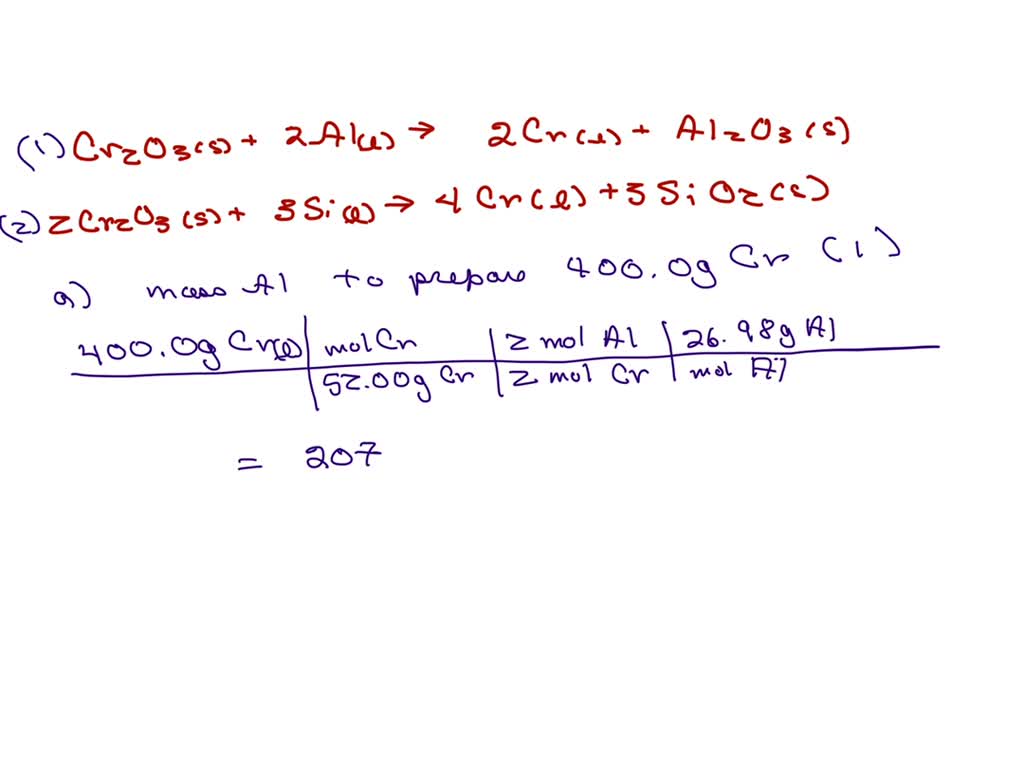 (1) Cr2O3(s) + 2Al(l) → 2Cr(l) + Al2O3(s)
(2) 2Cr2O3(s) + 3Si(l) → 4Cr(l) + 3SiO2(s)
a) mass Al to prepare 400.0g Cr (1)
400.0g Cr(l) | mol Cr | 2 mol Al | 26.98g Al
52.00g Cr | 2 mol Cr | mol Al
= 207